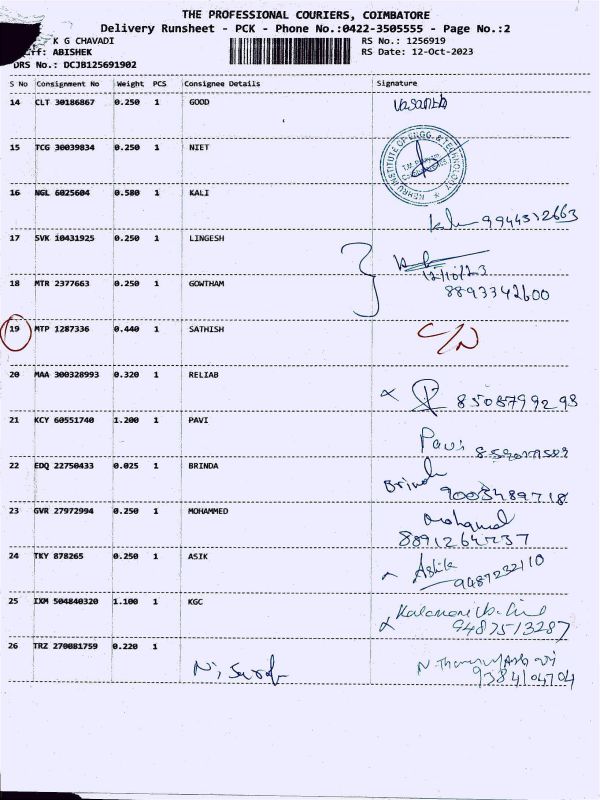 THE PROFESSIONAL COURIERS, COIMBATORE
Delivery Runsheet - PCK - Phone No.:0422-3505555 - Page No.:2
K G CHAVADI RS No.: 1256919
ff: ABISHEK RS Date: 12-Oct-2023
DRS No.: DCJB125691902
S No Consignment No Weight PCS Consignee Details Signature
14 CLT 30186867 0.250 1 GOOD
15 TCG 30039834 0.250 1 NIET
NEHRU INSTITUTE OF ENGG. & TECHNOLOGY
16 NGL 6025604 0.580 1 KALI
9944312663
17 SVK 10431925 0.250 1 LINGESH
12/10/23
18 MTR 2377663 0.250 1 GOWTHAM
8893342600
19 MTP 1287336 0.440 1 SATHISH
20 MAA 300328993 0.320 1 RELIAB
8508799293
21 KCY 60551740 1.200 1 PAVI Pavi
22 EDQ 22750433 0.025 1 BRINDA
Brinda
9003489718
23 GVR 27972994 0.250 1 MOHAMMED
24 TKY 878265 0.250 1 ASIK
9487232110
25 IXM 504840320 1.100 1 KGC
9487513287
26 TRZ 270081759 0.220 1
9384104704